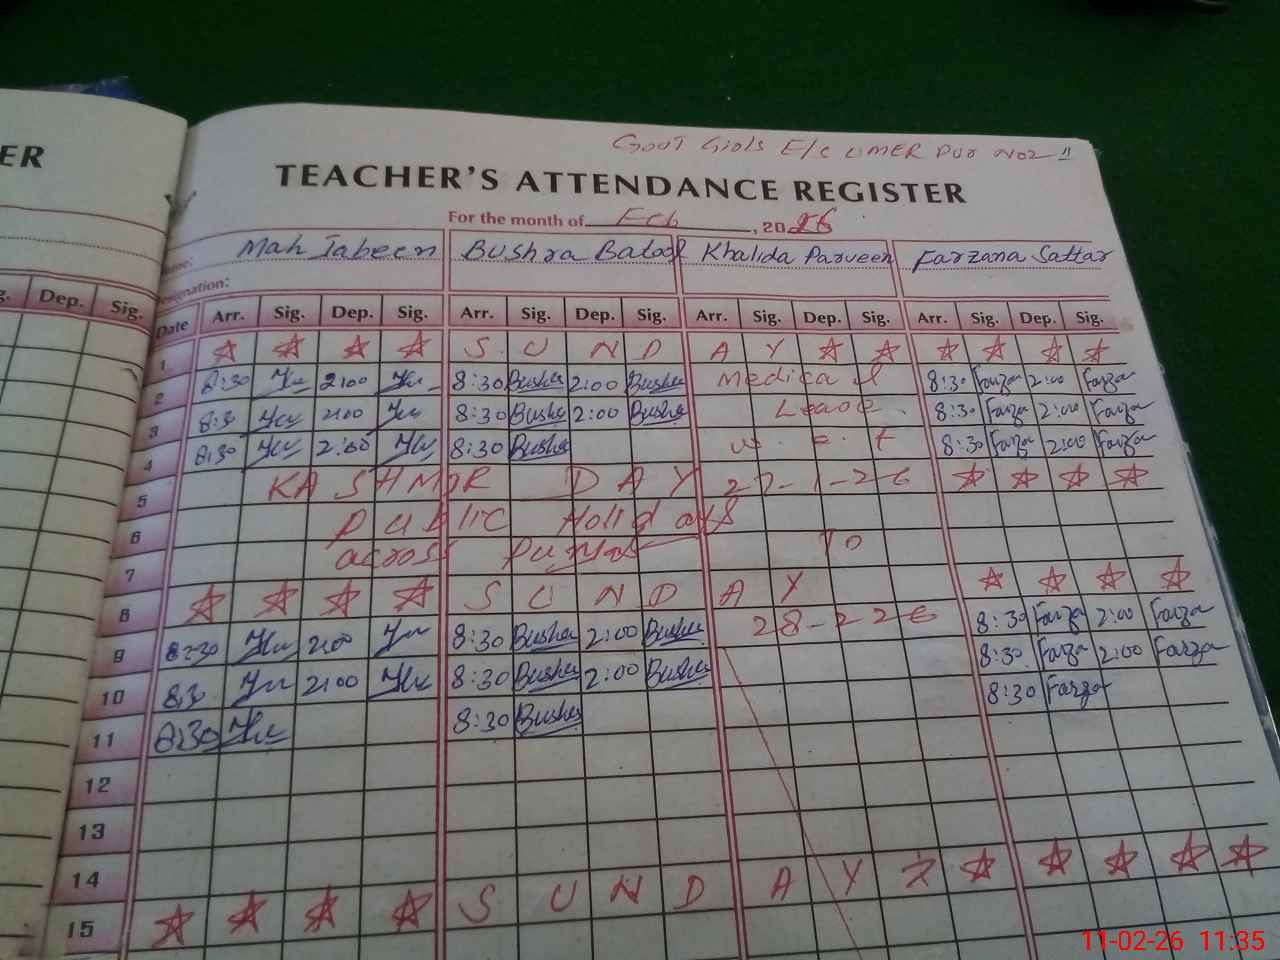 Govt Girls E/S UMER PUR NO2
ER
TEACHER'S ATTENDANCE REGISTER
For the month of Feb, 2026
Name: Mah Jabeen Bushra Batool Khalida Parveen Farzana Sattar
Designation:
Dep. Sig. Date Arr. Sig. Dep. Sig. Arr. Sig. Dep. Sig. Arr. Sig. Dep. Sig. Arr. Sig. Dep. Sig.
1 S U N D A Y
2 8:30 2:00 8:30 Bushra 2:00 Bushra Medical 8:30 Farza 2:00 Farza
3 8:30 2:00 8:30 Bushra 2:00 Bushra Leave 8:30 Farza 2:00 Farza
4 8:30 2:00 8:30 Bushra w.e.f 8:30 Farza 2:00 Farza
5 KASHMIR DAY 27-1-26
6 PUBLIC Holidays
7 across Punjab To
8 S U N D A Y
9 8:30 2:00 8:30 Bushra 2:00 Bushra 28-2-26 8:30 Farza 2:00 Farza
10 8:30 2:00 8:30 Bushra 2:00 Bushra 8:30 Farza 2:00 Farza
11 8:30 8:30 Bushra 8:30 Farza
12
13
14
15 S U N D A Y
11-02-26 11:35